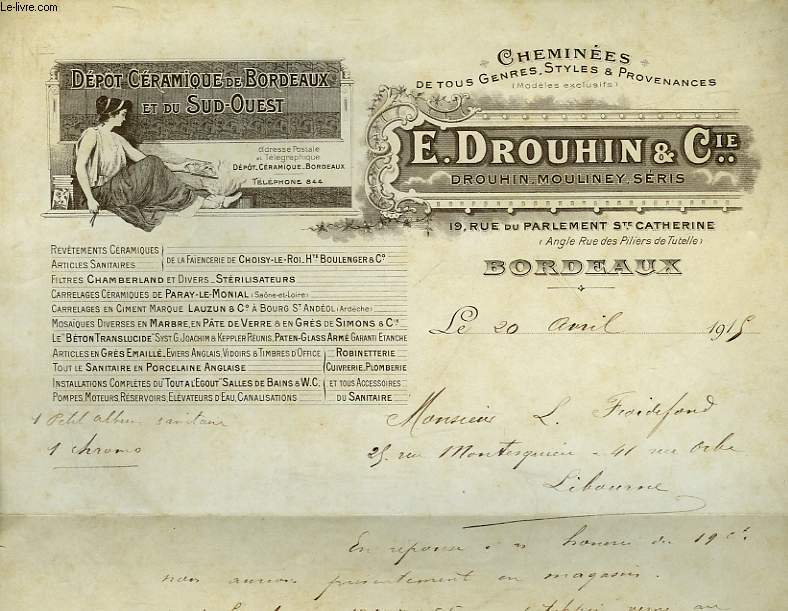 Le-livre.com
DÉPOT CÉRAMIQUE DE BORDEAUX
ET DU SUD-OUEST
Adresse Postale
et Télégraphique
DÉPOT_CÉRAMIQUE_BORDEAUX
TÉLÉPHONE 844
CHEMINÉES
DE TOUS GENRES, STYLES & PROVENANCES
(Modèles exclusifs)
E. DROUHIN & CIE
DROUHIN_MOULINEY_SÉRIS
19, RUE DU PARLEMENT STE CATHERINE
(Angle Rue des Piliers de Tutelle)
BORDEAUX
REVÊTEMENTS CÉRAMIQUES
ARTICLES SANITAIRES
DE LA FAIENCERIE DE CHOISY-LE-ROI. HTE BOULENGER & Co
FILTRES CHAMBERLAND ET DIVERS_STÉRILISATEURS
CARRELAGES CÉRAMIQUES DE PARAY-LE-MONIAL (Saône-et-Loire)
CARRELAGES EN CIMENT MARQUE LAUZUN & Co À BOURG ST ANDÉOL (Ardèche)
MOSAÏQUES DIVERSES EN MARBRE, EN PÂTE DE VERRE & EN GRÈS DE SIMONS & Cie
LE "BÉTON TRANSLUCIDE" SYST. G. JOACHIM & KEPPLER RÉUNIS, PATEN-GLASS ARMÉ GARANTI ETANCHE
ARTICLES EN GRÈS EMAILLÉ, EVIERS ANGLAIS, VIDOIRS & TIMBRES D'OFFICE
TOUT LE SANITAIRE EN PORCELAINE ANGLAISE
INSTALLATIONS COMPLÈTES DU "TOUT À L'ÉGOUT" SALLES DE BAINS & W.C.
POMPES MOTEURS, RÉSERVOIRS, ELÉVATEURS D'EAU, CANALISATIONS
ROBINETTERIE
CUIVRERIE, PLOMBERIE
ET TOUS ACCESSOIRES
DU SANITAIRE
Le 20 Avril 1915
1 Petit album sanitaire
1 chromo
Monsieur L. Froidefond
25, rue Montesquieu - 41 rue
Libourne
En réponse à honorée du 19 ct
nous avons présentement en magasin.